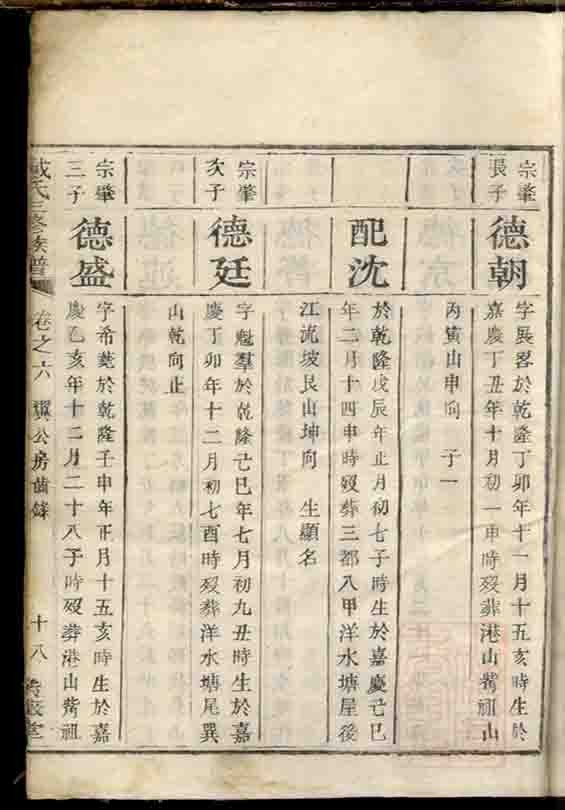 宗肇
長子
德朝
字展畧於乾隆丁卯年十一月十五亥時生於
嘉慶丁丑年十月初一申時歿葬港山觜祖山
丙寅山申向 子一
配沈
於乾隆戊辰年正月初七子時生於嘉慶己巳
年二月十四申時歿葬三都八甲洋水塘屋後
江流坡艮山坤向 生顯名
宗肇
次子
德廷
字魁羣於乾隆己巳年七月初九丑時生於嘉
慶丁卯年十二月初七酉時歿葬洋水塘尾巽
山乾向止
宗肇
三子
德盛
字希蕘於乾隆壬申年正月十五亥時生於嘉
慶乙亥年十二月二十八子時歿葬港山觜祖
戴氏三修族譜
卷之六
翼公房齒錄
十八
堂